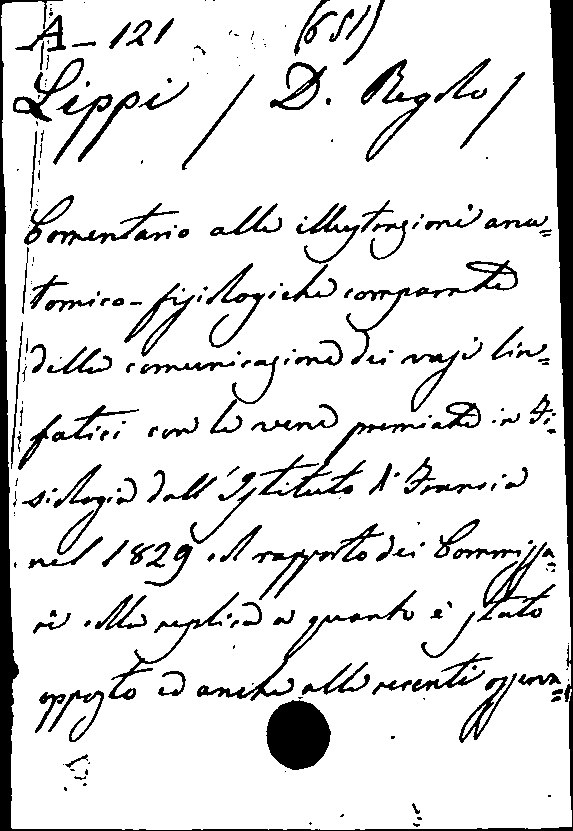 A-121 (651)
Lippi / D. Regolo /
Comentario alle illustrazioni ana=
tomico-fisiologiche comparate
della comunicazione dei vasi lin=
fatici con le vene premiate in Fi=
siologia dall'Istituto di Francia
nel 1829 al rapporto dei Commissa=
ri alla replica a quanto è stato
opposto ed anche alle recenti osserva=